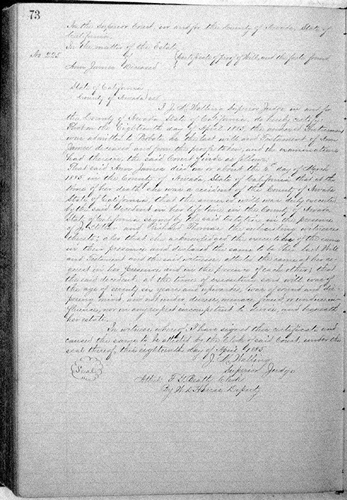 73
In the Superior Court, in and for the County of Nevada, State of
California.
In the matter of the Estate
No. 225 of Certificate of Proof of Will, and the facts found
Ann James Deceased
State of California
County of Nevada
I J. M. Walling Superior Judge in and for
the County of Nevada, State of California, do hereby certify
That on the Eighteenth day of April 1893, the annexed Testament
was admitted to Probate as the last will and Testament of Ann
James deceased and from the proofs taken and the examinations
had therein, the said Court finds as follows:
That said Ann James died on or about the day of April
1893, in the County of Nevada, State of California; that at the
time of her death she was a resident of the County of Nevada
State of California; that the annexed will was duly executed
by the said decedent in her lifetime in the County of Nevada
State of California signed by the said testatrix in the presence
of and Thomas the subscribing witnesses
thereto; also that she acknowledged the execution of the same
in their presence and declared the same to be her last Will
and Testament and the said witnesses attested the same at her re-
quest in her presence and in the presence of each other; that
the said decedent at the time of executing said will was of
the age of eighteen years and upwards, was of sound and dis-
posing mind, and not under duress, menace, fraud or undue in-
fluence, nor in any respect incompetent to devise and bequeath
her estate.
In witness whereof, I have signed this certificate and
caused the same to be attested by the Clerk of said Court under the
seal thereof, this eighteenth day of April 1893
J. M. Walling
Superior Judge
Seal
Attest F. G. Beatty Clerk
By Deputy